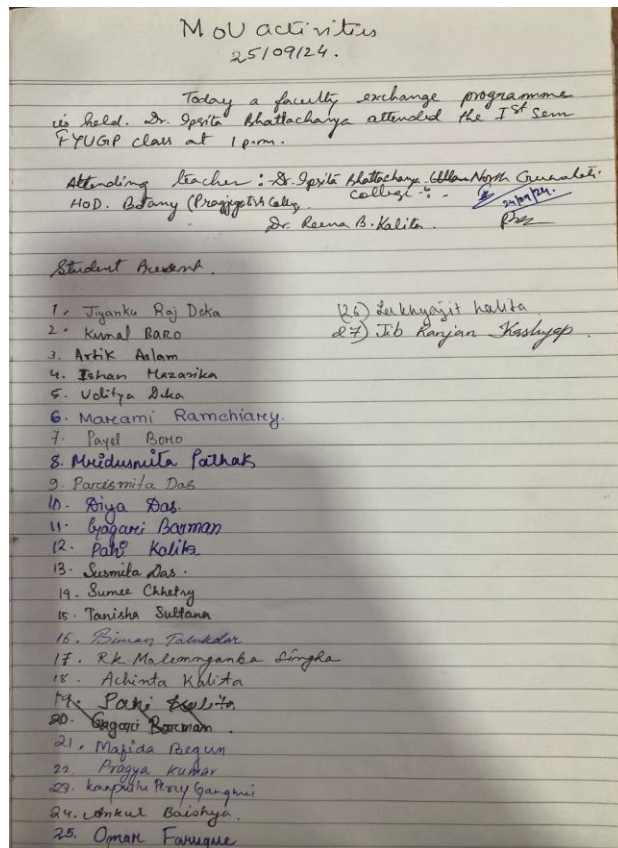 MoU activities
25/09/24.
Today a faculty exchange programme
is held. Dr. Ipsita Bhattacharya attended the Ist Sem
FYUGP class at 1 p.m.
Attending teacher : Dr. Ipsita Bhattacharya North Guwahati
College
HOD. Botany (Pragjyotish College
24/09/24.
Dr. Reena B. Kalita.
Student Present.
1. Jiyanku Raj Deka
2. Kunal BARO
3. Artik Aslam
4. Ishan Hazarika
5. Uditya Deka
6. Marami Ramchiary.
7. Payel Boro
8. Mridusmita Pathak
9. Parismita Das
10. Diya Das.
11. Gagari Barman
12. Pahi Kalita
13. Susmita Das.
14. Sumee Chhetry
15. Tanisha Sultana
16. Biman Talukdar
17. R.K. Malemnganba Singha
18. Achinta Kalita
19. Pahi Kalita
20. Gagari Barman.
21. Mafida Begum
22. Pragya Kumar
23. Gangmei
24. Ankur Baishya.
25. Omar Faruque
(26) Kalita
27) Jib Ranjan Kashyap.